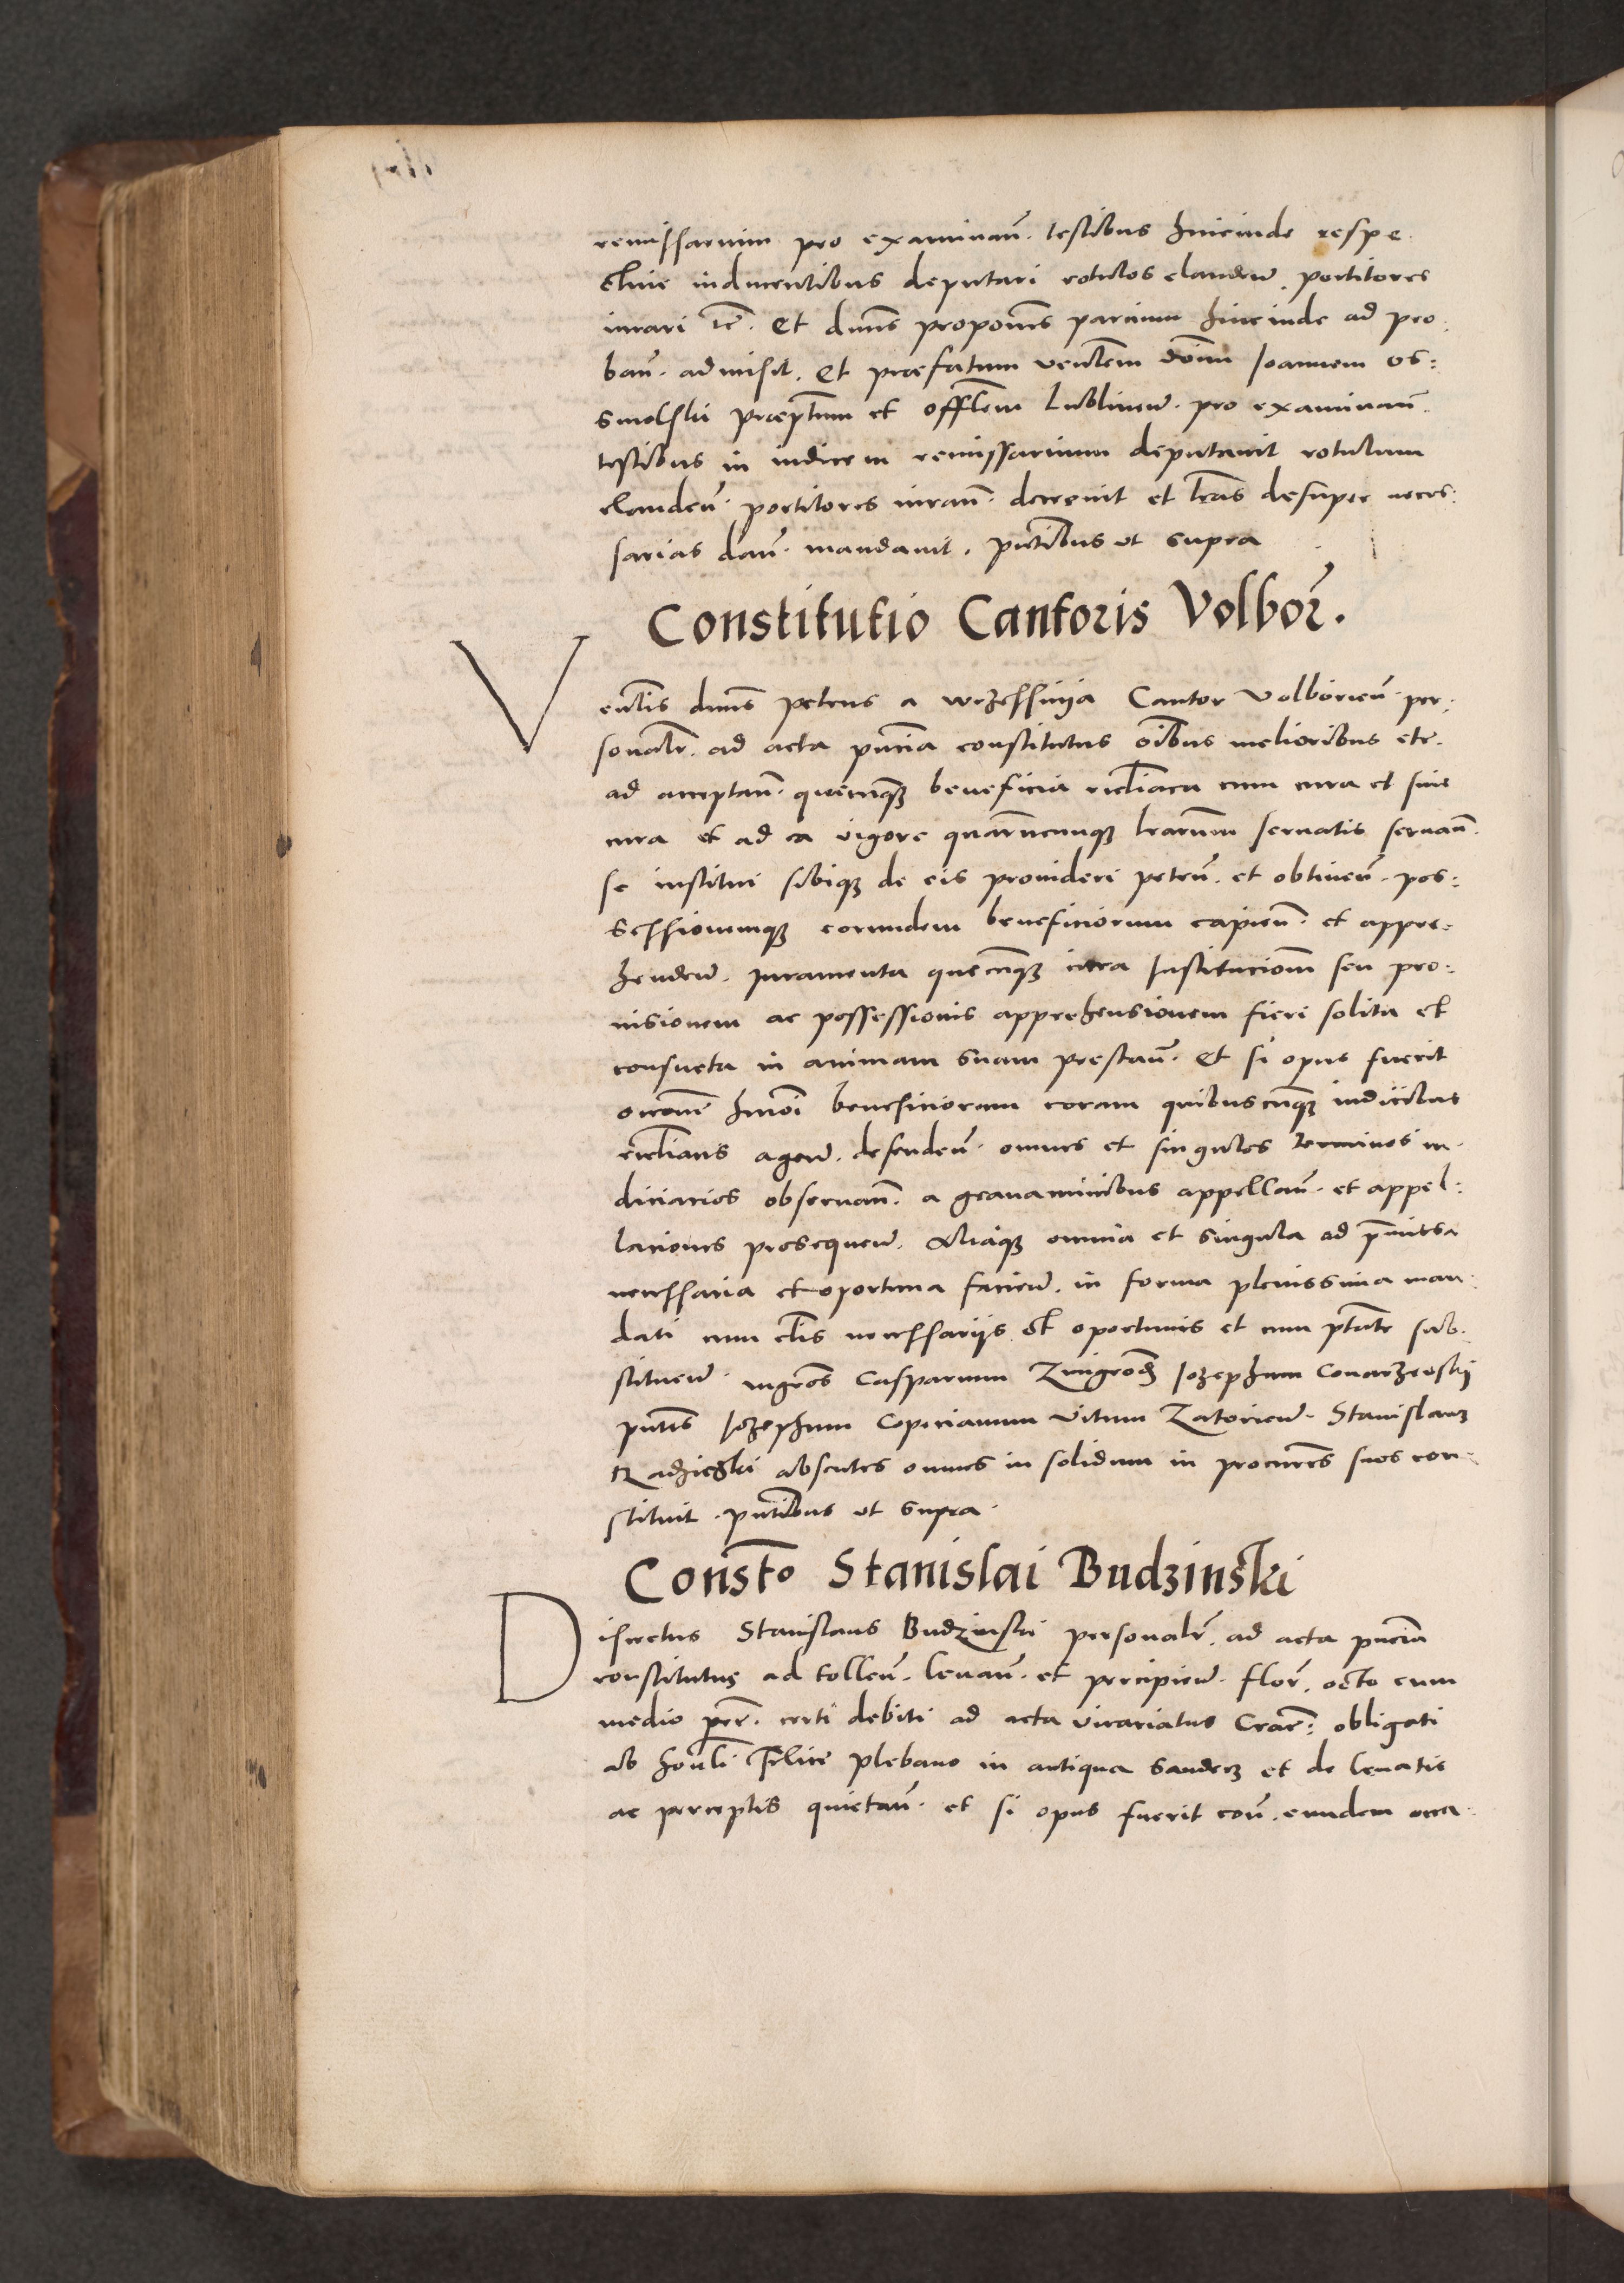 remissarium pro examinan̄. testibus hincinde respe
ctiue inducentibus deputari rotulos clauden̄. portitores
iurari ꝛc̄. Et dnūs proponēs parcium hincinde ad pro:
ban̄. admisit. Et præfatum ven̄lem don̄m Joannem Os:
smolski præptum et offlem Lublinen̄. pro examinan̄.
testibus in iudicem remissarium deputauit rotulum
clauden̄. portitores iuran̄. decreuit et lr̄as desuper neces:
sarias dan̄. mandauit. pn̄tibus vt supra
Constitutio Cantoris Volbor̄.
Ven̄lis dnūs Petrus a Wrzessnija Cantor Volborien̄. per:
sonalr̄. ad acta pn̄cia constitutus oībus melioribus etc.
ad acceptan̄. quecunqꝫ beneficia ecclīaca cum cura et sine
cura et ad ea vigore quarumcunqꝫ lr̄arum seruatis seruan̄.
se institui sibiqꝫ de eis prouideri peten̄. et obtinen̄. pos:
sessionemqꝫ eorundem beneficiorum capien̄. et appre:
henden̄. Juramenta quecunqꝫ circa Institucionem seu pro:
uisionem ac possessionis apprehensionem fieri solita et
consueta in animam suam prestan̄. Et si opus fuerit
occone hmōi beneficiorum coram quibuscunqꝫ iudicibus
ecclīacis agen̄. defenden̄. omnes et singulos terminos iu
diciarios obseruan̄. a grauaminibus appellan̄. et appel:
laciones prosequen̄. Aliaqꝫ omnia et singula ad p̄missa
necessaria et oportuna facien̄. in forma plenissima man:
dati cum clīs necessarijs et oportunis et cum ptāte sub
stituen̄. mgr̄os Casparum Zmigrod Jozephum Conarzewskij
pn̄tes Jozephum Copiciannum Vitum Zatorien̄. Stanislaum
Radziegski absentes omnes in solidum in procurēs suos con
stituit. pn̄tibus vt supra.
Const̄o Stanislai Budzinski
Discretus Stanislaus Budzinski personalr̄. ad acta pn̄cia
constitutus ad tollen̄. leuan̄. et percipien̄. flor̄. octo cum
medio pecc̄. certi debiti ad acta vicariatus Crac̄: obligati
ab honli Felice plebano in antiqua Sandecz et de leuatis
ac perceptis quietan̄. et si opus fuerit con̄. eundem occa